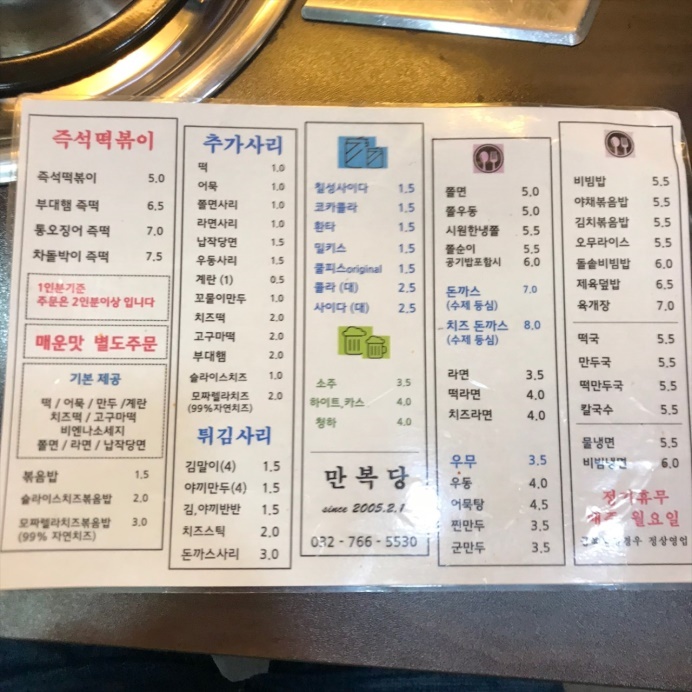 즉석떡볶이
즉석떡볶이 5.0
부대햄 즉떡 6.5
통오징어 즉떡 7.0
차돌박이 즉떡 7.5
1인분기준
주문은 2인분이상 입니다
매운맛 별도주문
기본 제공
떡 / 어묵 / 만두 /계란
치즈떡 / 고구마떡
비엔나소세지
쫄면 / 라면 / 납작당면
볶음밥 1.5
슬라이스치즈볶음밥 2.0
모짜렐라치즈볶음밥 3.0
(99% 자연치즈)
추가사리
떡 1.0
어묵 1.0
쫄면사리 1.0
라면사리 1.0
납작당면 1.0
우동사리 1.0
계란 (1) 0.5
꼬물이만두 1.0
치즈떡 2.0
고구마떡 2.0
부대햄 2.0
슬라이스치즈 1.0
모짜렐라치즈 2.0
(99%자연치즈)
튀김사리
김말이(4) 1.5
야끼만두(4) 1.5
김,야끼반반 1.5
치즈스틱 2.0
돈까스사리 3.0
칠성사이다 1.5
코카콜라 1.5
환타 1.5
밀키스 1.5
쿨피스original 1.5
콜라 (대) 2.5
사이다 (대) 2.5
소주 3.5
하이트,카스 4.0
청하 4.0
만복당
since 2005.2.1
032 - 766 - 5530
쫄면 5.0
쫄우동 5.0
시원한냉쫄 5.5
쫄순이 5.5
공기밥포함시 6.0
돈까스 7.0
(수제 등심)
치즈 돈까스 8.0
(수제 등심)
라면 3.5
떡라면 4.0
치즈라면 4.0
우무 3.5
우동 4.0
어묵탕 4.5
찐만두 3.5
군만두 3.5
비빔밥 5.5
야채볶음밥 5.5
김치볶음밥 5.5
오무라이스 5.5
돌솥비빔밥 6.0
제육덮밥 6.5
육개장 7.0
떡국 5.5
만두국 5.5
떡만두국 5.5
칼국수 5.5
물냉면 5.5
비빔냉면 6.0
정기휴무
매주 월요일
정상영업